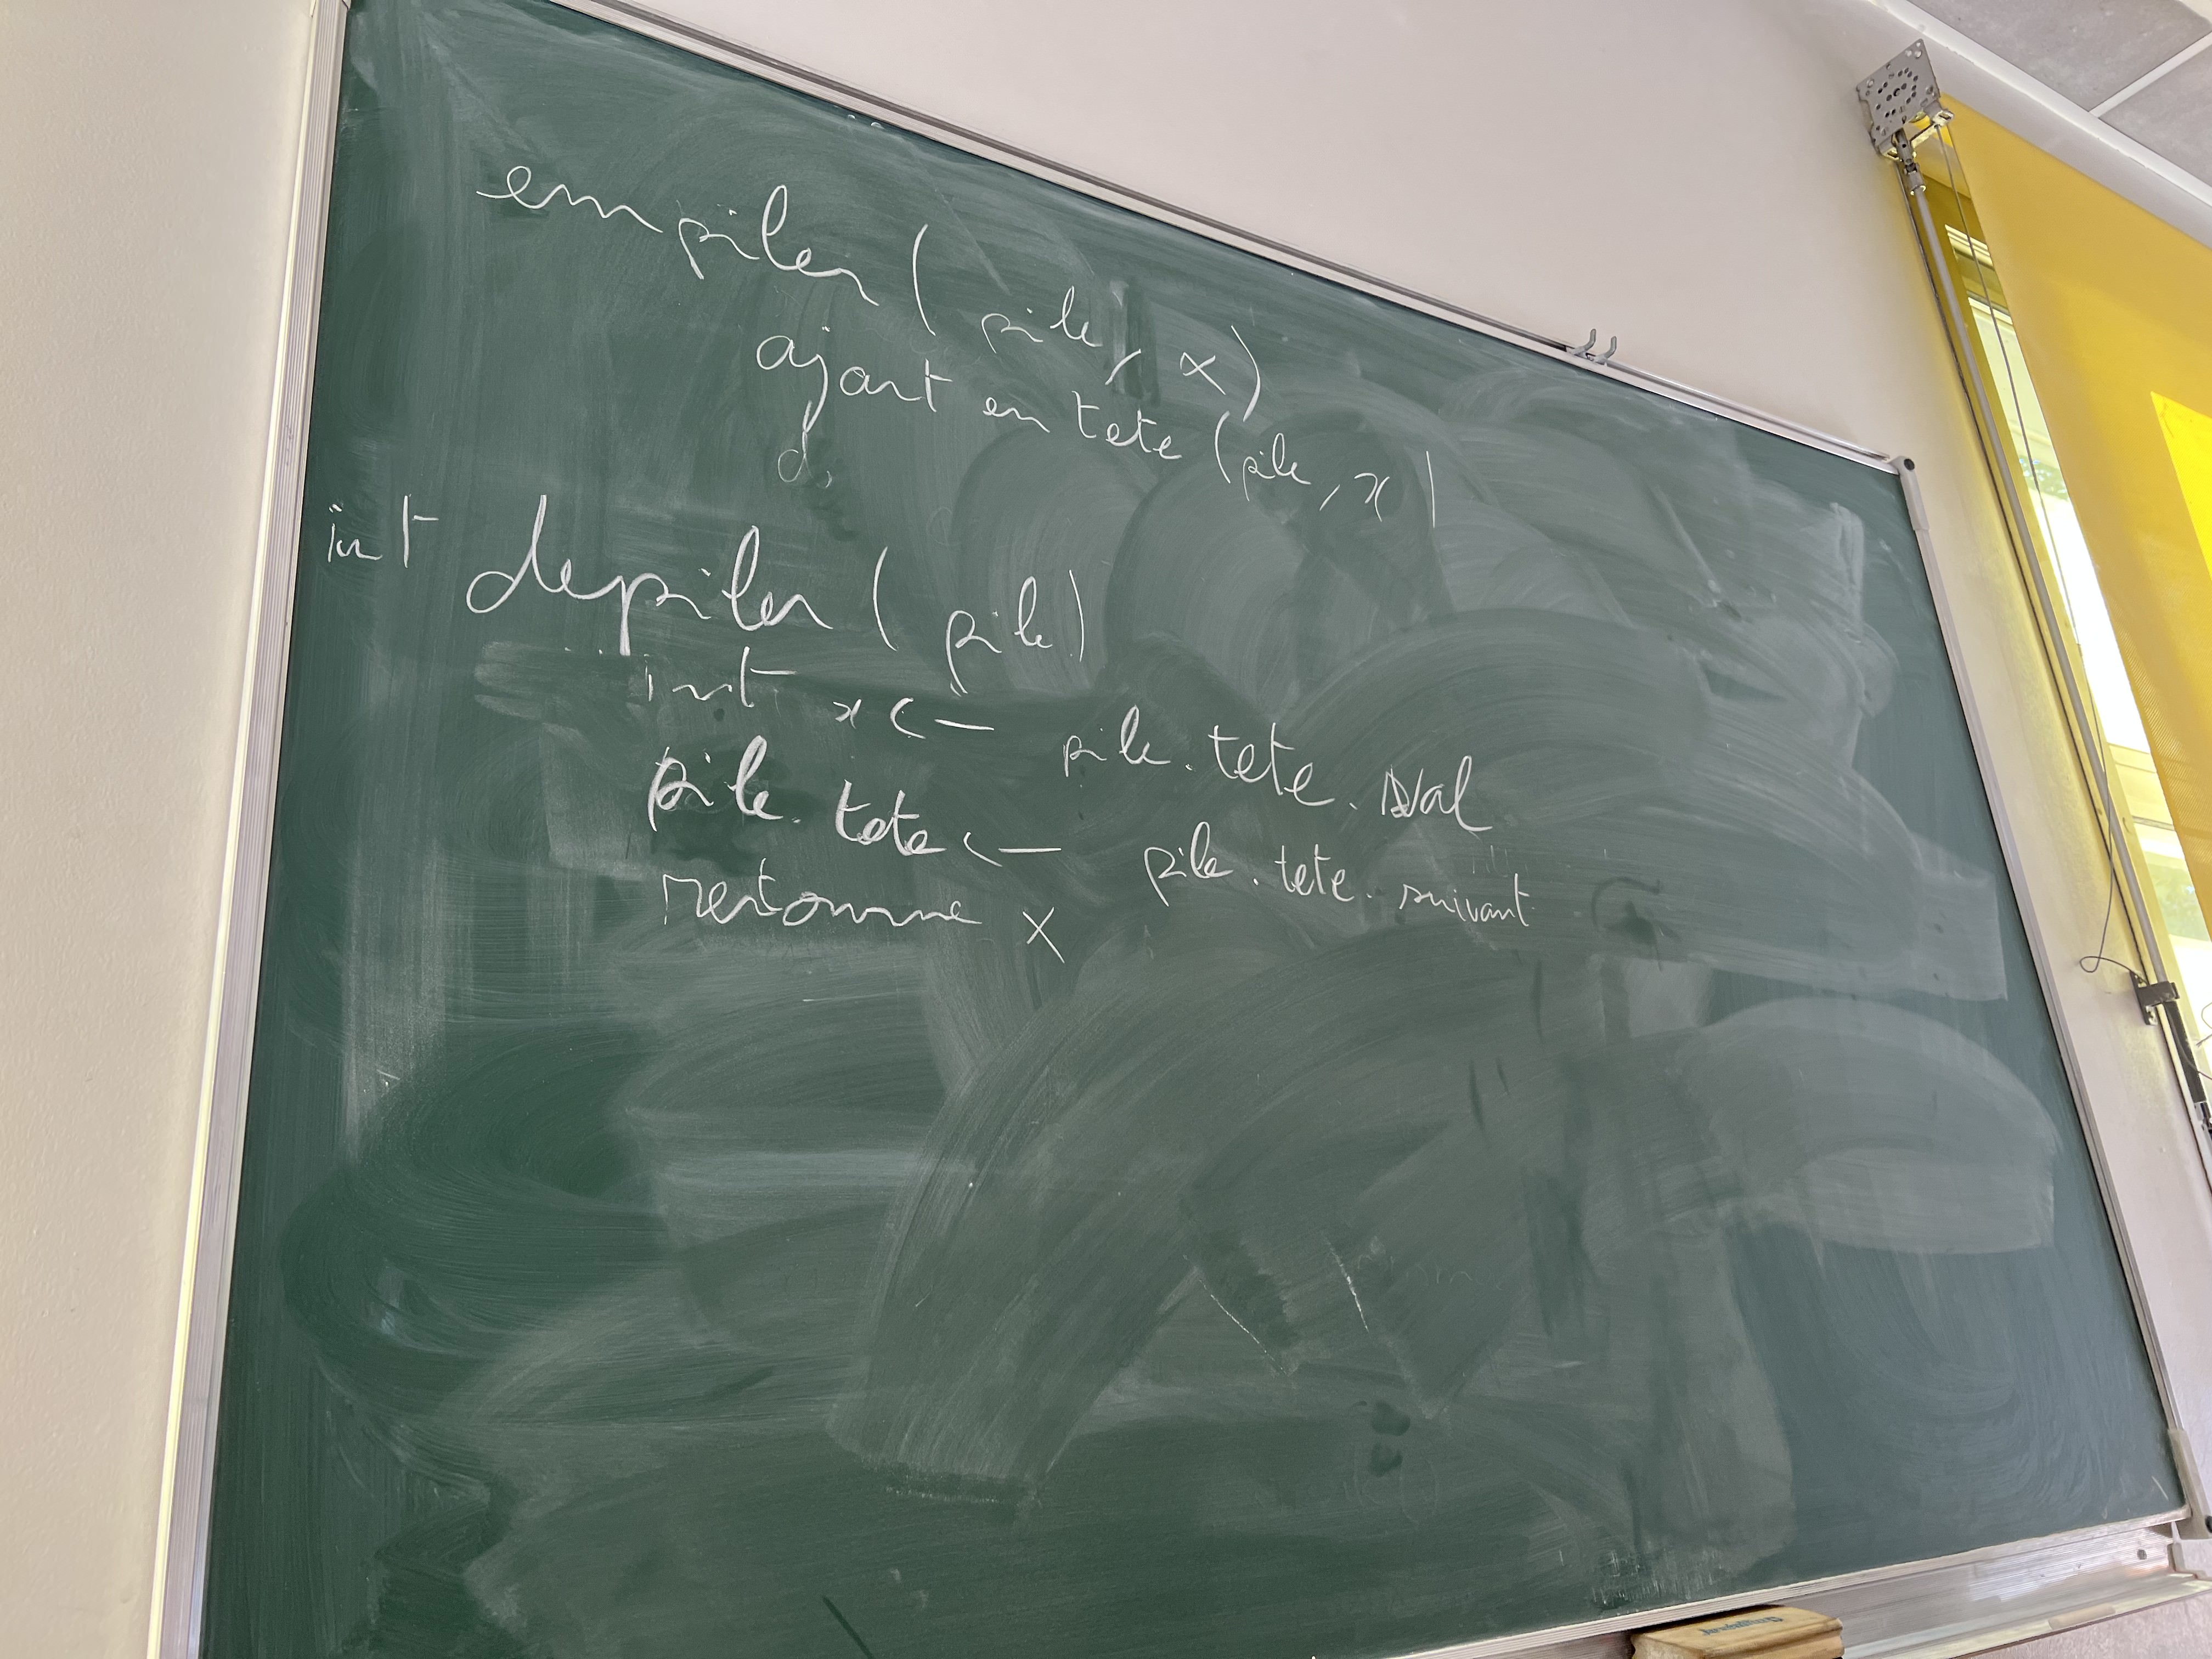 empiler ( pile, x)
ajout en tete (pile, x)
d
int depiler ( pile)
int x <— pile. tete. Val
pile. tete <— pile. tete. suivant
retourne x